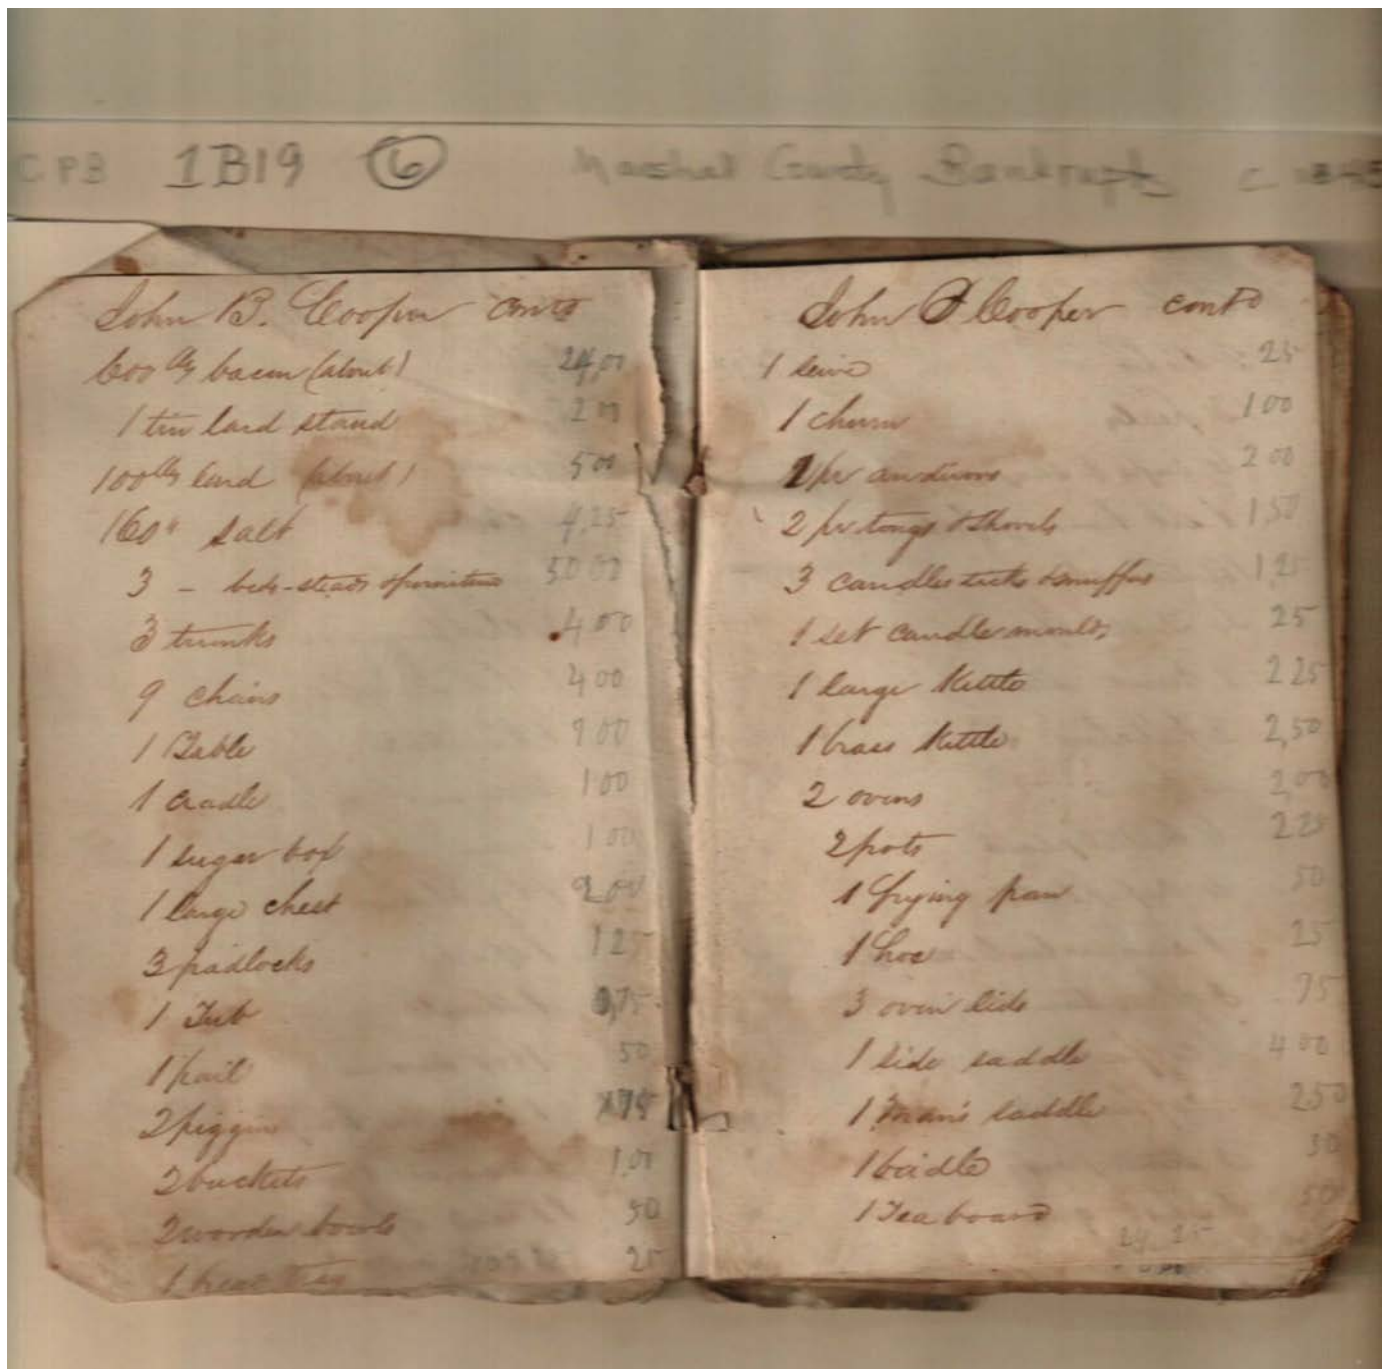 CPB 1B19 6 Marshal County Bankrupts C
John B. Cooper contd
600 lbs bacon (about) 24,00
1 tin lard stand 2 00
100 lbs lard (about) 5 00
160 " salt 4,25
3 - beds-steads & furniture 50 00
3 trunks 4 00
9 chairs 4 00
1 Table
1 cradle 1 00
1 sugar box 1 00
1 large chest 2 00
3 padlocks 1 25
1 Tub ,75
1 pail 50
2 piggins 75
2 buckets 1,00
2 wooden bowls 50
1 25
John B Cooper contd
1 seive 25
1 churn 1 00
1 pr andirons 2 00
2 pr tongs & shovels 1,50
3 candlesticks & snuffers 1,25
1 set candle moulds 25
1 large Kettle 2 25
1 brass Kettle 2,50
2 ovens 2,00
2 pots 2 25
1 frying pan 50
1 hoe 25
3 oven lids 75
1 side saddle 4 00
1 man's saddle 2 50
1 bridle 50
1 Tea board 50
24 25